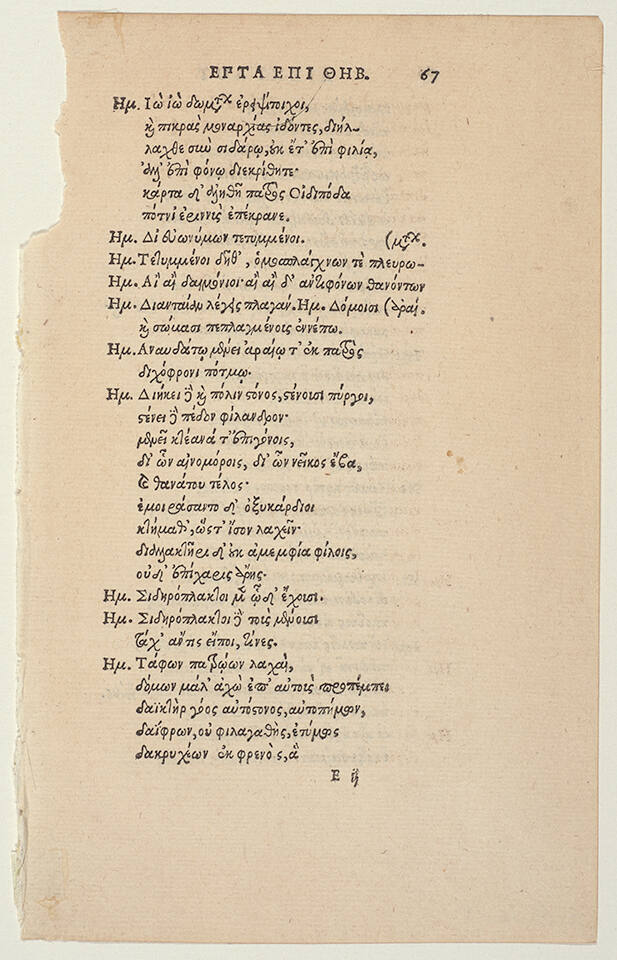 ΕΠΤΑ ΕΠΙ ΘΗΒ. 67
Ημ. Ιὼ ἰὼ δωμάτων ἐρεψίτοιχοι,
καὶ πικρὰς μοναρχίας ἰδόντες, διήλ-
λαχθε σὺν σιδάρῳ, οὐκ ἔτ' ἐπὶ φιλίᾳ,
ἀλλ' ἐπὶ φόνῳ διεκρίθητε·
κάρτα δ' ἀληθῆ πατρὸς Οἰδιπόδα
πότνι' ἐριννὺς ἐπέκρανε.
Ημ. Δι' εὐωνύμων τετυμμένοι. (μάτων.
Ημ. Τετυμμένοι δῆθ', ὁμοσπλάγχνων τὲ πλευρω-
Ημ. Αἲ αἲ δαιμόνιοι· αἲ αἲ δ' ἀντιφόνων θανόντων
Ημ. Διανταίαν λέγεις πλαγάν. Ημ. Δόμοισι (ἀραί.
καὶ σώμασι πεπλαγμένοις ἐννέπω.
Ημ. Αναυδάτῳ μένει ἀραίῳ τ' ἐκ πατρὸς
διχόφρονι πότμῳ.
Ημ. Διήκει δὲ καὶ πόλιν στόνος, στένουσι πύργοι,
στένει δὲ πέδον φίλανδρον·
μενεῖ κτέανά τ' ἐπιγόνοις,
δι' ὧν αἰνομόροις, δι' ὧν νεῖκος ἔβα,
καὶ θανάτου τέλος·
ἐμοιράσαντο δ' ὀξυκάρδιοι
κτήμαθ', ὥστ' ἴσον λαχεῖν·
διαλλακτῆρι δ' οὐκ ἀμεμφία φίλοις,
οὐδ' ἐπίχαρις ἄρης.
Ημ. Σιδηρόπλακτοι μὲν ὧδ' ἔχουσι.
Ημ. Σιδηρόπλακτοι δὲ τοὺς μένουσι
τάχ' αὖ τις εἴποι, τίνες.
Ημ. Τάφων πατρῴων λαχαὶ,
δόμων μάλ' ἀχὼ ἐπ' αὐτοὺς προπέμπει
δαϊκτὴρ γόος αὐτόστονος, αὐτοπήμων,
δαΐφρων, οὐ φιλαγαθὴς, ἐτύμως
δακρυχέων ἐκ φρενὸς, ἃ
Ε ij